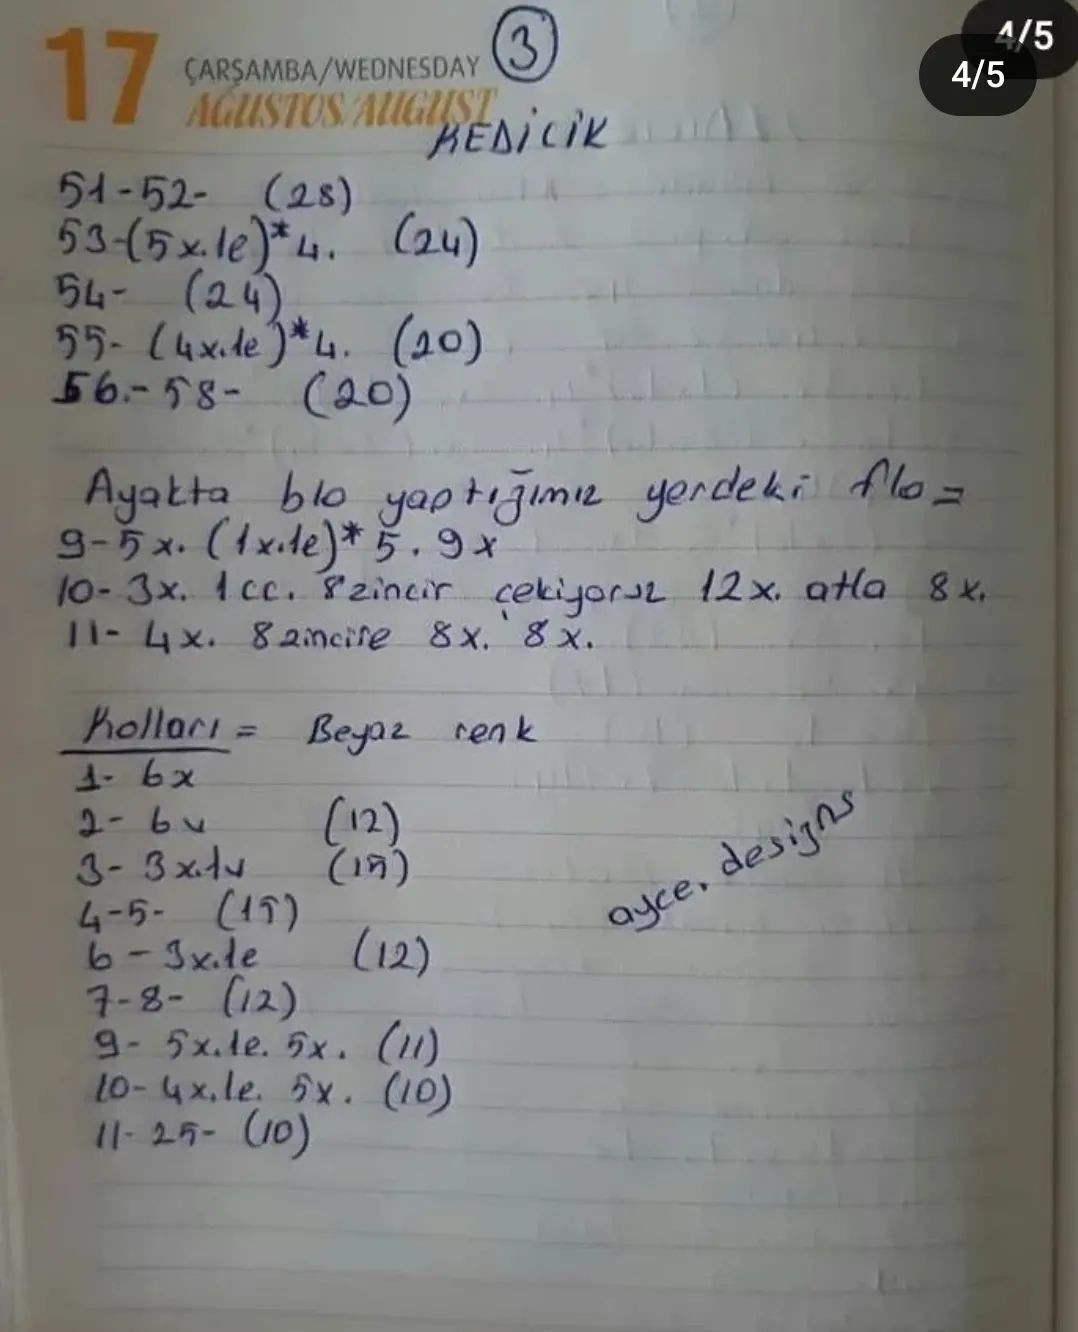 4/5
4/5
17 ÇARŞAMBA/WEDNESDAY 3
AĞUSTOS/AUGUST
KEDİCİK
51-52- (28)
53-(5x.1e)*4. (24)
54- (24)
55- (4x.1e)*4. (20)
56.-58- (20)
Ayakta blo yaptığımız yerdeki flo =
9-5x. (1x.1e)*5. 9x
10- 3x. 1cc. 8 zincir çekiyoruz 12x. atla 8x.
11- 4x. 8 zincire 8x. 8x.
Kolları = Beyaz renk
1- 6x
2- 6v (12)
3- 3x.1v (15)
4-5- (15)
6- 3x.1e (12)
7-8- (12)
9- 5x.1e. 5x. (11)
10- 4x.1e. 5x. (10)
11-25- (10)
ayce. designs